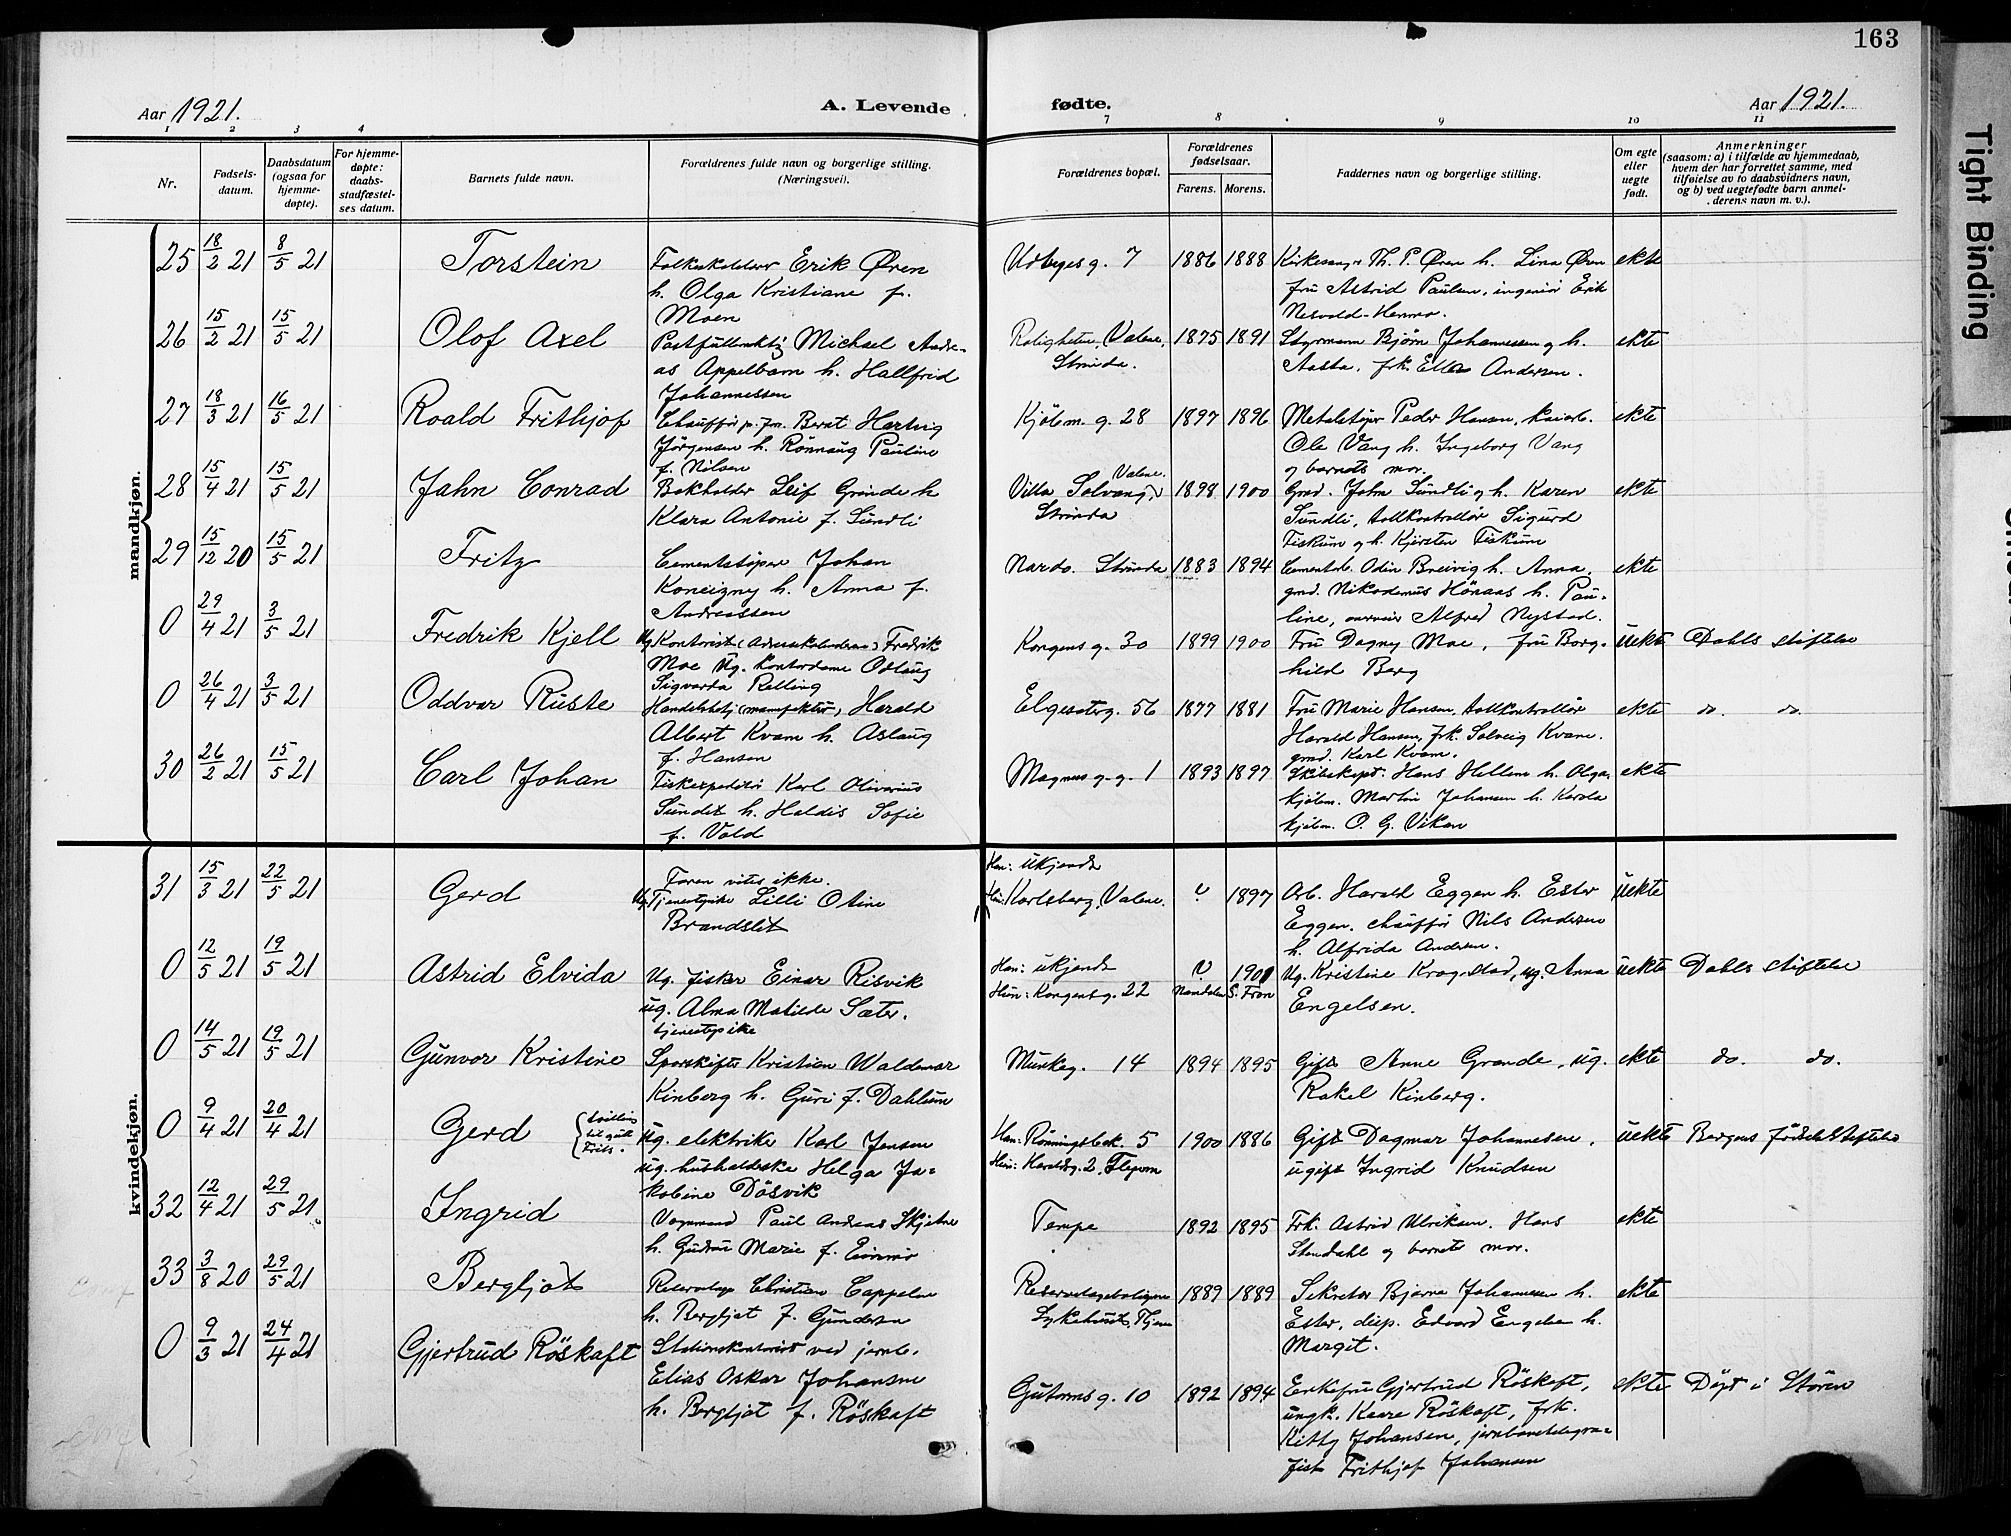 163
Aar 1921.
A. Levende fødte.
Aar 1921.
1 2 3 4 7 8 9 10 11
Nr.
Fødsels-
datum.
Daabsdatum
(ogsaa for
hjemme-
døpte).
For hjemme-
døpte:
daabs-
stadfæstel-
ses datum.
Barnets fulde navn.
Forældrenes fulde navn og borgerlige stilling.
(Næringsvei).
Forældrenes bopæl.
Forældrenes
fødselsaar.
Farens. Morens.
Faddernes navn og borgerlige stilling.
Om egte
eller
uegte
født.
Anmerkninger
(saasom: a) i tilfælde av hjemmedaab,
hvem der har forrettet samme, med
tilføielse av to daabsvidners navn,
og b) ved uegtefødte barn anmel-
derens navn m. v.).
mandkjøn.
25 18/2 21 8/5 21 Torstein
Erik Øren
h. Olga Kristiane f.
Moen
g. 7 1886 1888
Th. P. Øren h. Lina Øren
fru Astrid Paulsen, ingeniør Erik
ekte
26 15/2 21 15/5 21 Olof Axel
Postfuldmektig Michael Andre-
as Appelbom h. Hallfrid
Johannessen
Roligheten, Valene,
Strinda.
1875 1891
Styrmann Bjørn Johannessen og h.
Aasta, frk. Andersen.
ekte
27 18/3 21 16/5 21 Roald Frithjof
Bernt Hartvig
Jørgensen h. Rønnaug Pauline
f. Nilsen
Kjøbm. g. 28 1897 1896
Peder Hansen,
Ole Vang h. Ingeborg Vang
og barnets mor.
ekte
28 15/4 21 15/5 21 Jahn Conrad
Bokholder Leif Grande h
Klara Antonie f. Sundli
Villa Solvang, Valene.
Strinda
1898 1900
Grd. John Sundli og h. Karen
Sundli, tollkontrollør Sigurd
Fiskum og h. Kjersten Fiskum
ekte
29 15/12 20 15/5 21 Fritz
Cementstøper Johan
Koneizny h. Anna f.
Andreassen
Nardo. Strinda 1883 1894
Odin Breivig h. Anna,
grd. Nikodemus h. Pau-
line, Alfred Nystad.
ekte
0 29/4 21 3/5 21 Fredrik Kjell
Ug. Kontorist Fredrik
Moe Ug. kontordame Odlaug
Sigvarda Relling
Kongens g. 30 1899 1900
Fru Dagny Moe, fru Borg-
hild Berg
uekte Dahls stiftelse
0 26/4 21 3/5 21 Oddvar Ruste
Harald
Albert Kvam h. Aslaug
f. Hansen
Elgesæterg. 56 1877 1881
Fru Marie Hansen, tollkontrollør
Harald Hansen, frk. Solveig Kvam.
grd. Karl Kvam.
ekte do. do.
30 26/2 21 15/5 21 Carl Johan
Karl Olivarius
Sundet h. Haldis Sofie
f. Vold
Magnus g. g. 1 1893 1897
Hans Hellem h. Olga,
kjøbm. Martin Johansen h. Karola
kjøbm. O. G. Vikan
ekte
kvindekjøn.
31 15/3 21 22/5 21 Gerd
Faren vites ikke.
Ug. Tjenestepike Lilli Otine
Brandslet
Han: ukjendt
Hun: Karlsberg, Valene.
? 1897
Arb. Harald Eggen h. Ester
Eggen, chauffør Nils Andersen
h. Alfrida Andersen.
uekte
0 12/5 21 19/5 21 Astrid Elvida
Ug. fisker Einar Risvik
ug. Alma Matilde Sæter.
tjenestepike
Han: ukjendt
Hun: Kongensg. 22
? 1901
Namdalen S. Fron
Ug. Kristine Krogstad, ug. Anna
Engelsen.
uekte Dahls stiftelse
0 14/5 21 19/5 21 Gunvor Kristine
Sporskifter Kristian Waldemar
Kinberg h. Guri f. Dahlum
Munkeg. 14 1894 1895
Gift Anne Grande, ug.
Rakel Kinberg.
ekte do. do.
0 9/4 21 20/4 21 Gerd
ug. elektriker Karl Jensen
ug. husholderske Helga Ja-
kobine Døsvik
Han: Rønningsbak. 5
Hun: Haraldsg. 2,
1900 1886
Gift Dagmar Johannesen,
ugift Ingrid Knudsen
uekte Bergens fødselsstiftelse
32 12/4 21 29/5 21 Ingrid
Vognmand Paul Andreas
h. Gudrun Marie f.
Tempe 1892 1895
Frk. Astrid Ulriksen. Hans
Stendahl og barnets mor.
ekte
33 3/8 20 29/5 21 Bergljot
Reservelæge Christian Cappelen
h. Bergljot f. Gundersen
Reservelægeboligen
Sykehuset,
1889 1889
Sekretær Bjarne Johannesen h.
Ester, disp. Edvard Engelsen h.
Margit.
ekte
0 9/3 21 24/4 21 Gjertrud Röskaft
Stationskontorist ved jernb.
Elias Oskar Johansen
h. Bergljot f. Röskaft
Gutorms g. 10 1892 1894
Enkefru Gjertrud Röskaft,
ungk. Kaare Röskaft, frk.
Kitty Johansen, jernbanetelegra-
fist Frithjof Johansen
ekte Döpt i Stören
Tight Binding